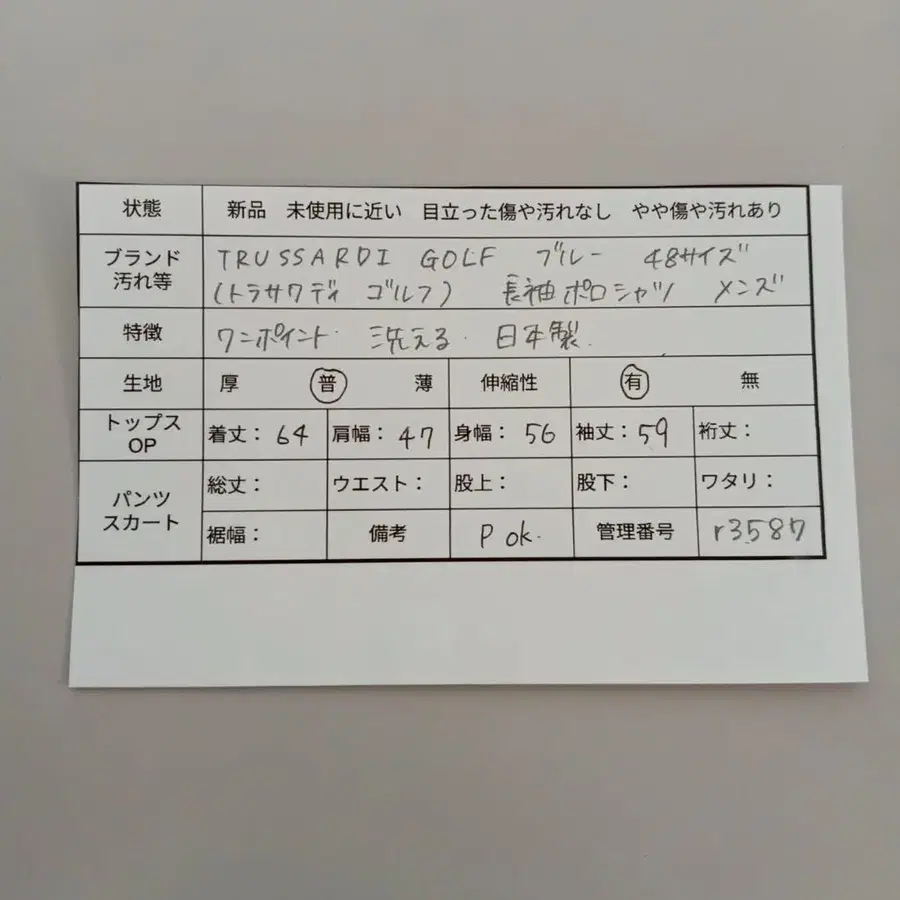 状態 新品 未使用に近い 目立った傷や汚れなし やや傷や汚れあり
ブランド
汚れ等
TRUSSARDI GOLF ブルー 48サイズ
(トラサワディ ゴルフ) 長袖ポロシャツ メンズ
特徴 ワンポイント 洗える 日本製
生地 厚 普 薄 伸縮性 有 無
トップス
OP
着丈: 64 肩幅: 47 身幅: 56 袖丈: 59 裄丈:
パンツ
スカート
総丈: ウエスト: 股上: 股下: ワタリ:
裾幅: 備考 P ok. 管理番号 r3587